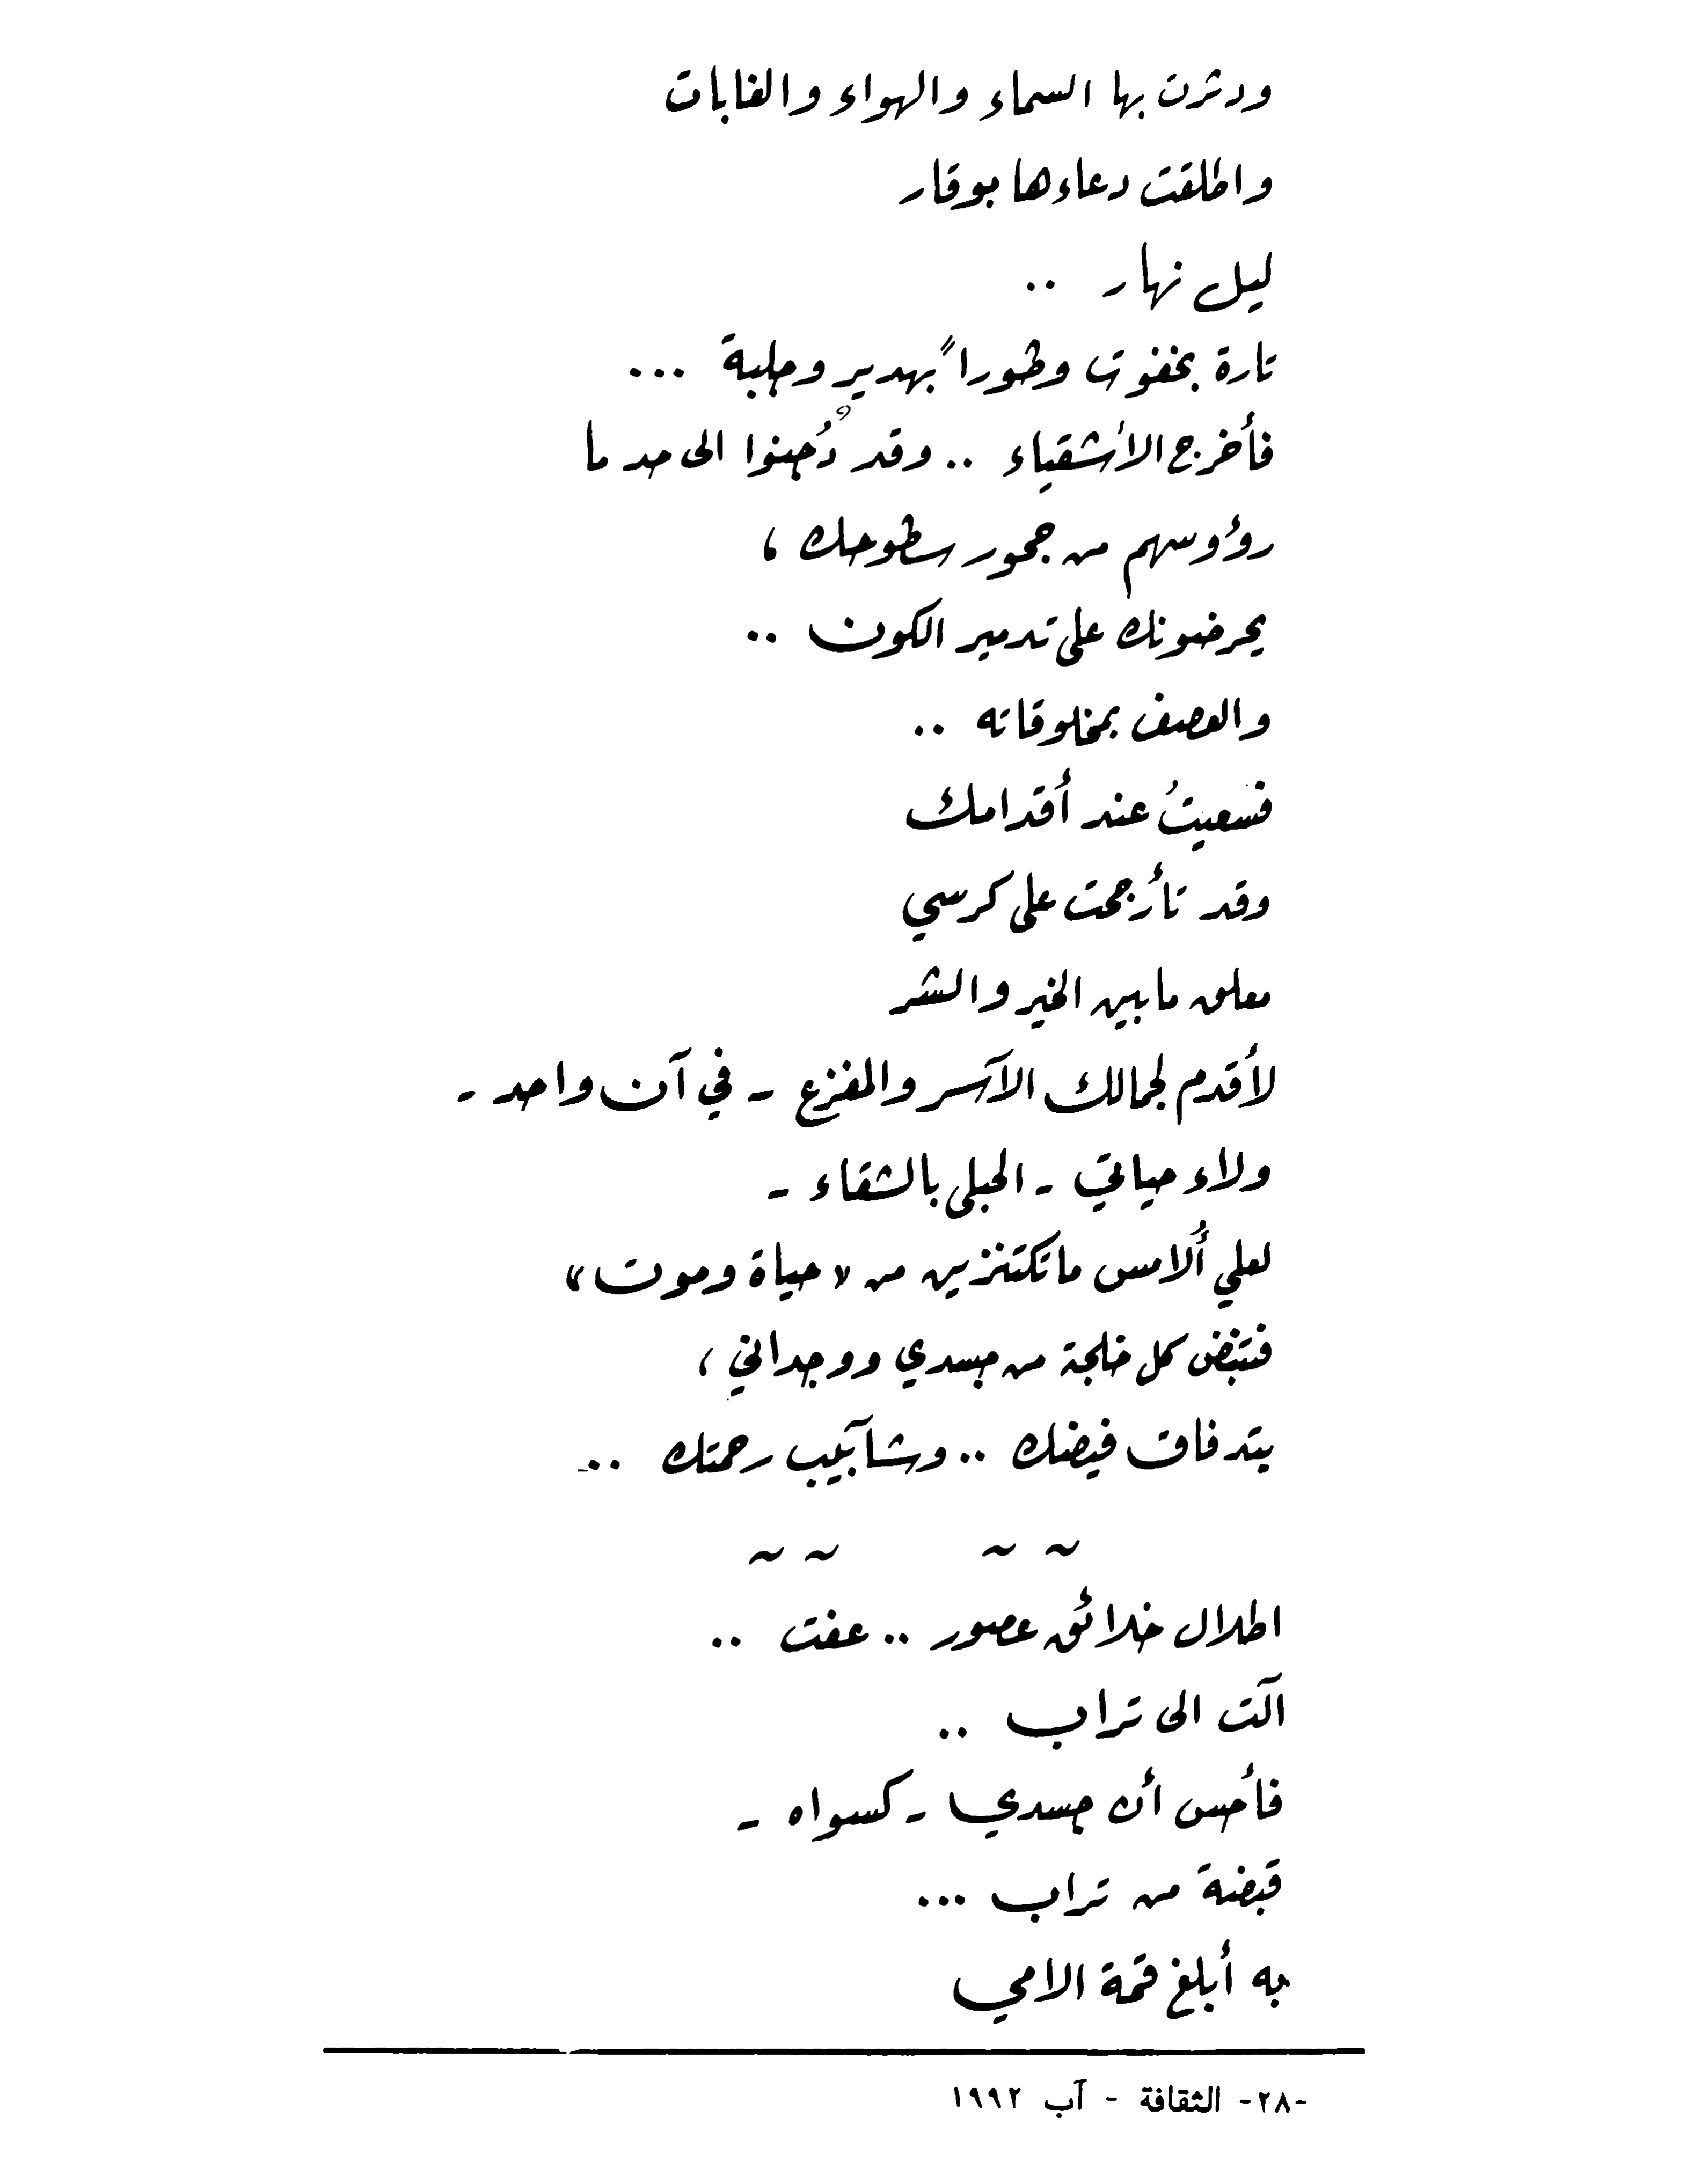 ودثرت بها السماء والهواء والغابات
واطلقت دعاءها بوقار
ليل نهار ..
تارة بخفوت وطوراً بهدير وجلبة ...
فأخرج الأشقياء .. وقد دُجنوا الى حد ما
رؤوسهم من جحور سطوحك ،
يحرضونك على تدمير الكون ..
والعصف بمخلوقاته ..
فسعيتُ عند أقدامك
وقد تأرجحت على كرسي
معلق مابين الخير والشر
لأقدم لجمالك الآسر والمفزع - في آن واحد -
ولاء حياتي - الحبلى بالشقاء -
لعلي ألامس ماتكتنزين من «حياة وموت»
فتنبض كل خلجة من جسدي ووجداني ،
بتدفاق فيضك .. وشآبيب رحمتك ..
~ ~ ~ ~
اطلال خلائق عصور .. عفت ..
آلت الى تراب ..
فأحس أن جسدي - كسواه -
قبضة من تراب ...
به أبلغ قمة الامي
-٢٨- الثقافة - آب ١٩٩٢